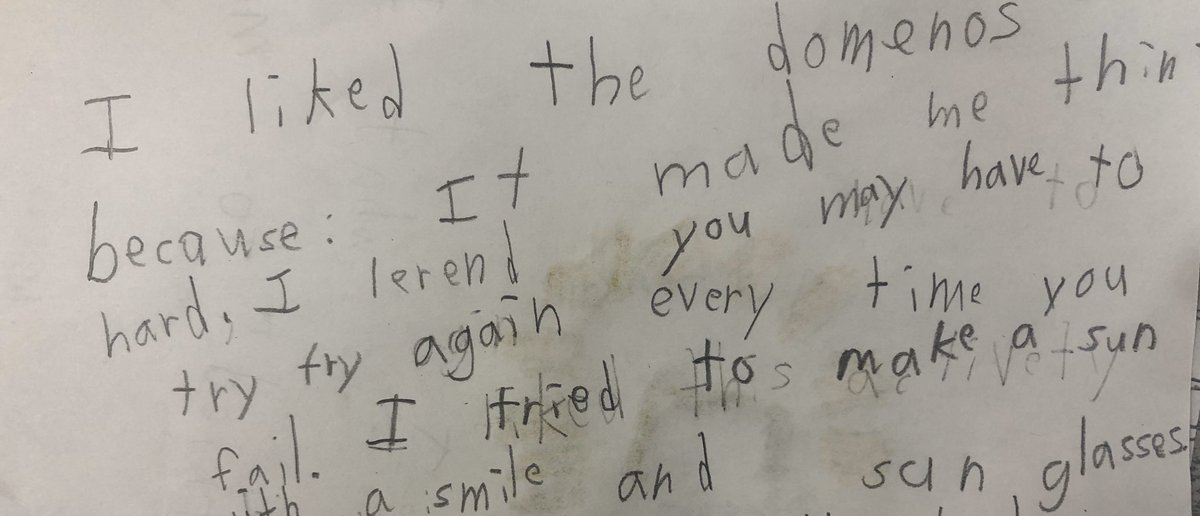 I liked the domenos
because: It made me thin
hard. I lerend you may have to
try try again every time you
fail. I tried to make a sun
ith a smile and sun glasses